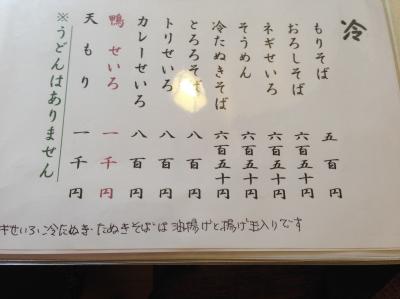 冷
もりそば 五百円
おろしそば 六百五十円
ネギせいろ 六百五十円
そうめん 六百五十円
冷たぬきそば 六百五十円
とろろそば 八百円
トリせいろ 八百円
カレーせいろ 八百円
鴨せいろ 一千円
天もり 一千円
※うどんはありません
ギせいろ・冷たぬき・たぬきそばは油揚げと揚げ玉入りです